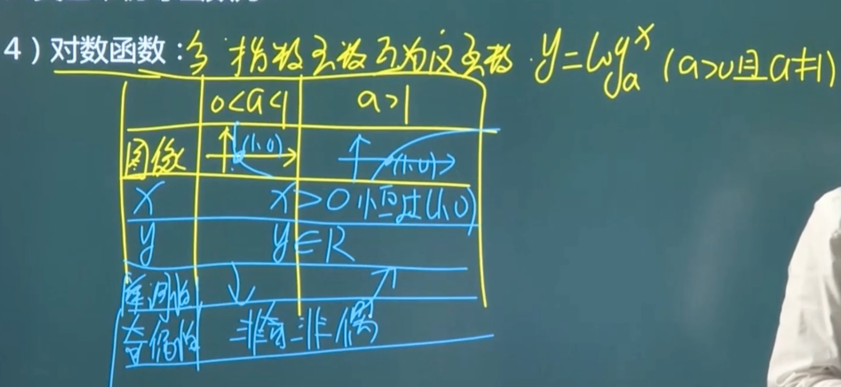 4）对数函数：与指数函数互为反函数. y=log_a^x (a>0且a≠1)
0<a<1 a>1
图像 (1,0) (1,0)
x x>0 恒过(1,0)
y y∈R
单调性 ↓ ↗
奇偶性 非奇非偶